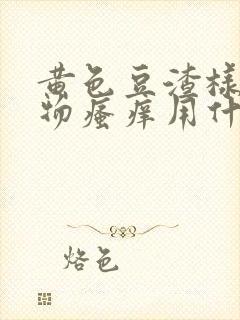 黄色豆渣样
物瘙痒用什
烙色